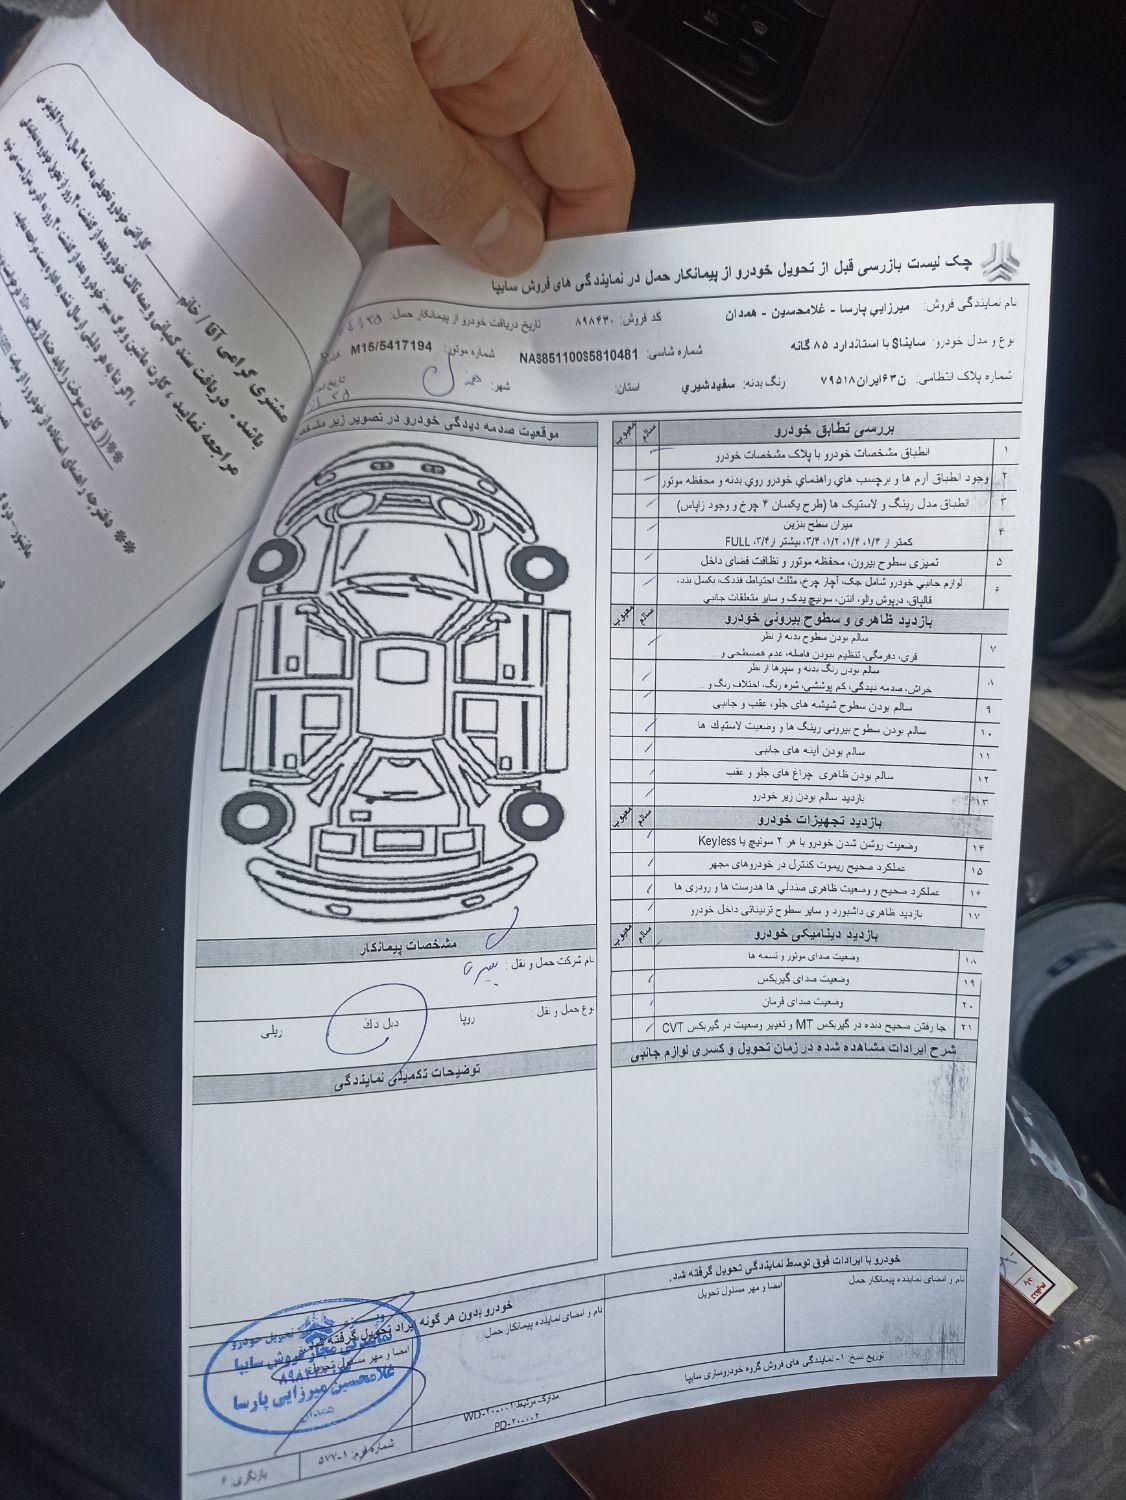 چک لیست بازرسی قبل از تحویل خودرو از پیمانکار حمل در نمایندگی های فروش سایپا
نام نمایندگی فروش: میرزایی پارسا - غلامحسین - همدان
کد فروش: ۸۹۸۴۳۰
تاریخ دریافت خودرو از پیمانکار حمل:
نوع و مدل خودرو: سایناS با استاندارد ۸۵ گانه
شماره شاسی: NAS851100S5810481
شماره موتور: M15/5417194
شماره پلاک انتظامی: ن۶۳ایران۷۹۵۱۸
رنگ بدنه: سفیدشیري
استان:
شهر:
بررسی تطابق خودرو
سالم
معیوب
۱ انطباق مشخصات خودرو با پلاک مشخصات خودرو
۲ وجود انطباق آرم ها و برچسب هاي راهنماي خودرو روي بدنه و محفظه موتور
۳ انطباق مدل رینگ و لاستیک ها (طرح یکسان ۴ چرخ و وجود زاپاس)
۴ میزان سطح بنزین
کمتر از ۱/۴، ۱/۴، ۱/۲، ۳/۴، بیشتر از ۳/۴، FULL
۵ تمیزی سطوح بیرون، محفظه موتور و نظافت فضای داخل
۶ لوازم جانبي خودرو شامل جک، آچار چرخ، مثلث احتیاط فندک، بکسل بند،
قالپاق، درپوش والو، آنتن، سوئیچ یدک و سایر متعلقات جانبي
بازدید ظاهری و سطوح بیرونی خودرو
سالم
معیوب
۷ سالم بودن سطوح بدنه از نظر
قری، دفرمگی، تنظیم نبودن فاصله، عدم همسطحی و ...
۸ سالم بودن رنگ بدنه و سپرها از نظر
خراش، صدمه دیدگی، کم پوششی، شره رنگ، اختلاف رنگ و ...
۹ سالم بودن سطوح شیشه های جلو، عقب و جانبی
۱۰ سالم بودن سطوح بیرونی رینگ ها و وضعیت لاستیك ها
۱۱ سالم بودن آینه های جانبی
۱۲ سالم بودن ظاهری چراغ های جلو و عقب
۱۳ بازدید سالم بودن زیر خودرو
بازدید تجهیزات خودرو
سالم
معیوب
۱۴ وضعیت روشن شدن خودرو با هر ۲ سوئیچ یا Keyless
۱۵ عملکرد صحیح ریموت کنترل در خودروهای مجهز
۱۶ عملکرد صحیح و وضعیت ظاهری صندلي ها هدرست ها و رودری ها
۱۷ بازدید ظاهری داشبورد و سایر سطوح تزئیناتی داخل خودرو
بازدید دینامیکی خودرو
سالم
معیوب
۱۸ وضعیت صدای موتور و تسمه ها
۱۹ وضعیت صدای گیربکس
۲۰ وضعیت صدای فرمان
۲۱ جا رفتن صحیح دنده در گیربکس MT و تغییر وضعیت در گیربکس CVT
شرح ایرادات مشاهده شده در زمان تحویل و کسری لوازم جانبی
موقعیت صدمه دیدگی خودرو در تصویر زیر
مشخصات پیمانکار
نام شرکت حمل و نقل:
نوع حمل و نقل:
روپا
دبل دك
ریلی
توضیحات تکمیلی نمایندگی
خودرو با ایرادات فوق توسط نمایندگی تحویل گرفته شد.
نام و امضای نماینده پیمانکار حمل
امضا و مهر مسئول تحویل
خودرو بدون هر گونه ایراد تحویل گرفته شد.
نام و امضای نماینده پیمانکار حمل
امضا و مهر مسئول تحویل
تحویل خودرو
نمایندگی مجاز فروش سایپا
غلامحسین میرزایی پارسا
همدان
توزیع نسخ: ۱- نمایندگی های فروش گروه خودروسازی سایپا
مدارک مرتبط: WD-۲۰-۰۰۱
PD-۲۰-۰۰۲
شماره فرم: ۵۷۷-۱
بازنگری: ۶
مشتری گرامی آقا / خانم
باشد. دریافت سند کمپانی و
مراجعه نمایید